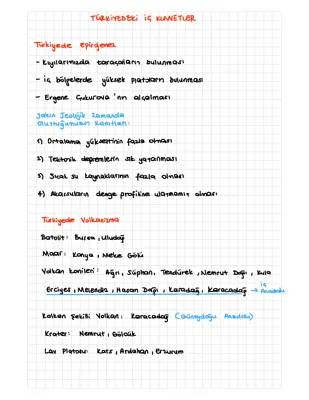 TÜRKİYEDEKİ İÇ KUVVETLER
Türkiyede epirojenez
- Kıyılarımızda taraçaların bulunması
- iç bölgelerde yüksek platoların bulunması
- Ergene Çukurova'nın alçalması
Yakın Jeolojik Zamanda
Oluştuğunun Kanıtları:
1) Ortalama yükseltinin fazla olması
2) Tektonik depremlerin sık yaşanması
3) Sıcak su kaynaklarının fazla olması
4) Akarsuların denge profiline ulaşmamış olması
Türkiyede Volkanizma
Batolit: Bursa, Uludağ
Maar: Konya, Meke Gölü
Volkan Konileri: Ağrı, Süphan, Tendürek, Nemrut Dağı, Kula
Erciyes, Melendiz, Hasan Dağı, Karadağ, Karacadağ → İç Anadolu
Kalkan Şekilli Volkan: Karacadağ (Güneydoğu Anadolu)
Krater: Nemrut, Gölcük
Lav Platosu: Kars, Ardahan, Erzurum